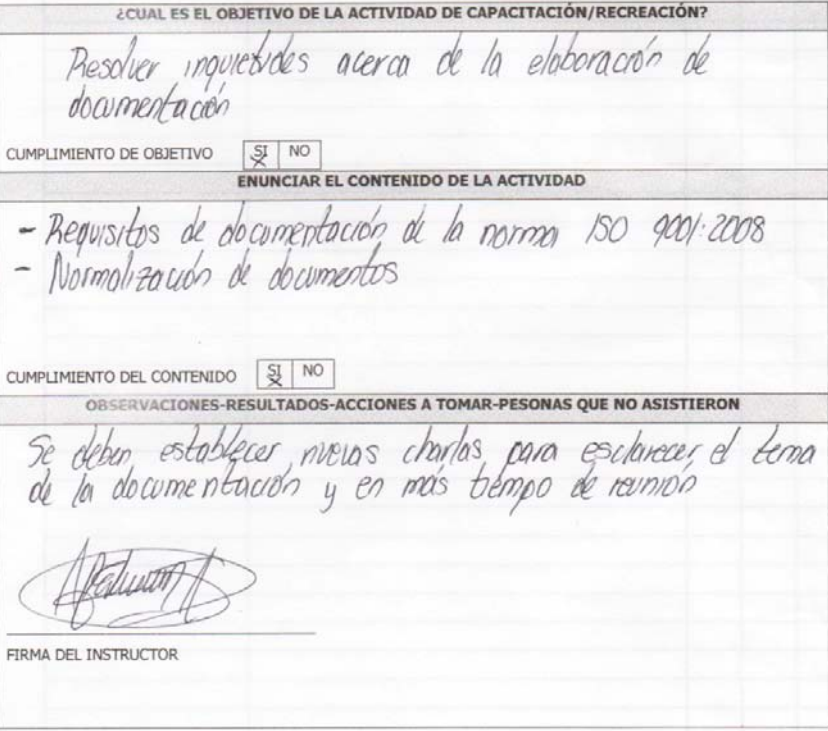 ¿CUAL ES EL OBJETIVO DE LA ACTIVIDAD DE CAPACITACIÓN/RECREACIÓN?
Resolver inquietudes acerca de la elaboración de
documentación
CUMPLIMIENTO DE OBJETIVO SI NO
ENUNCIAR EL CONTENIDO DE LA ACTIVIDAD
- Requisitos de documentación de la norma ISO 9001:2008
- Normalización de documentos
CUMPLIMIENTO DEL CONTENIDO SI NO
OBSERVACIONES-RESULTADOS-ACCIONES A TOMAR-PESONAS QUE NO ASISTIERON
Se deben establecer nuevas charlas para esclarecer el tema
de la documentación y en más tiempo de reunión
FIRMA DEL INSTRUCTOR